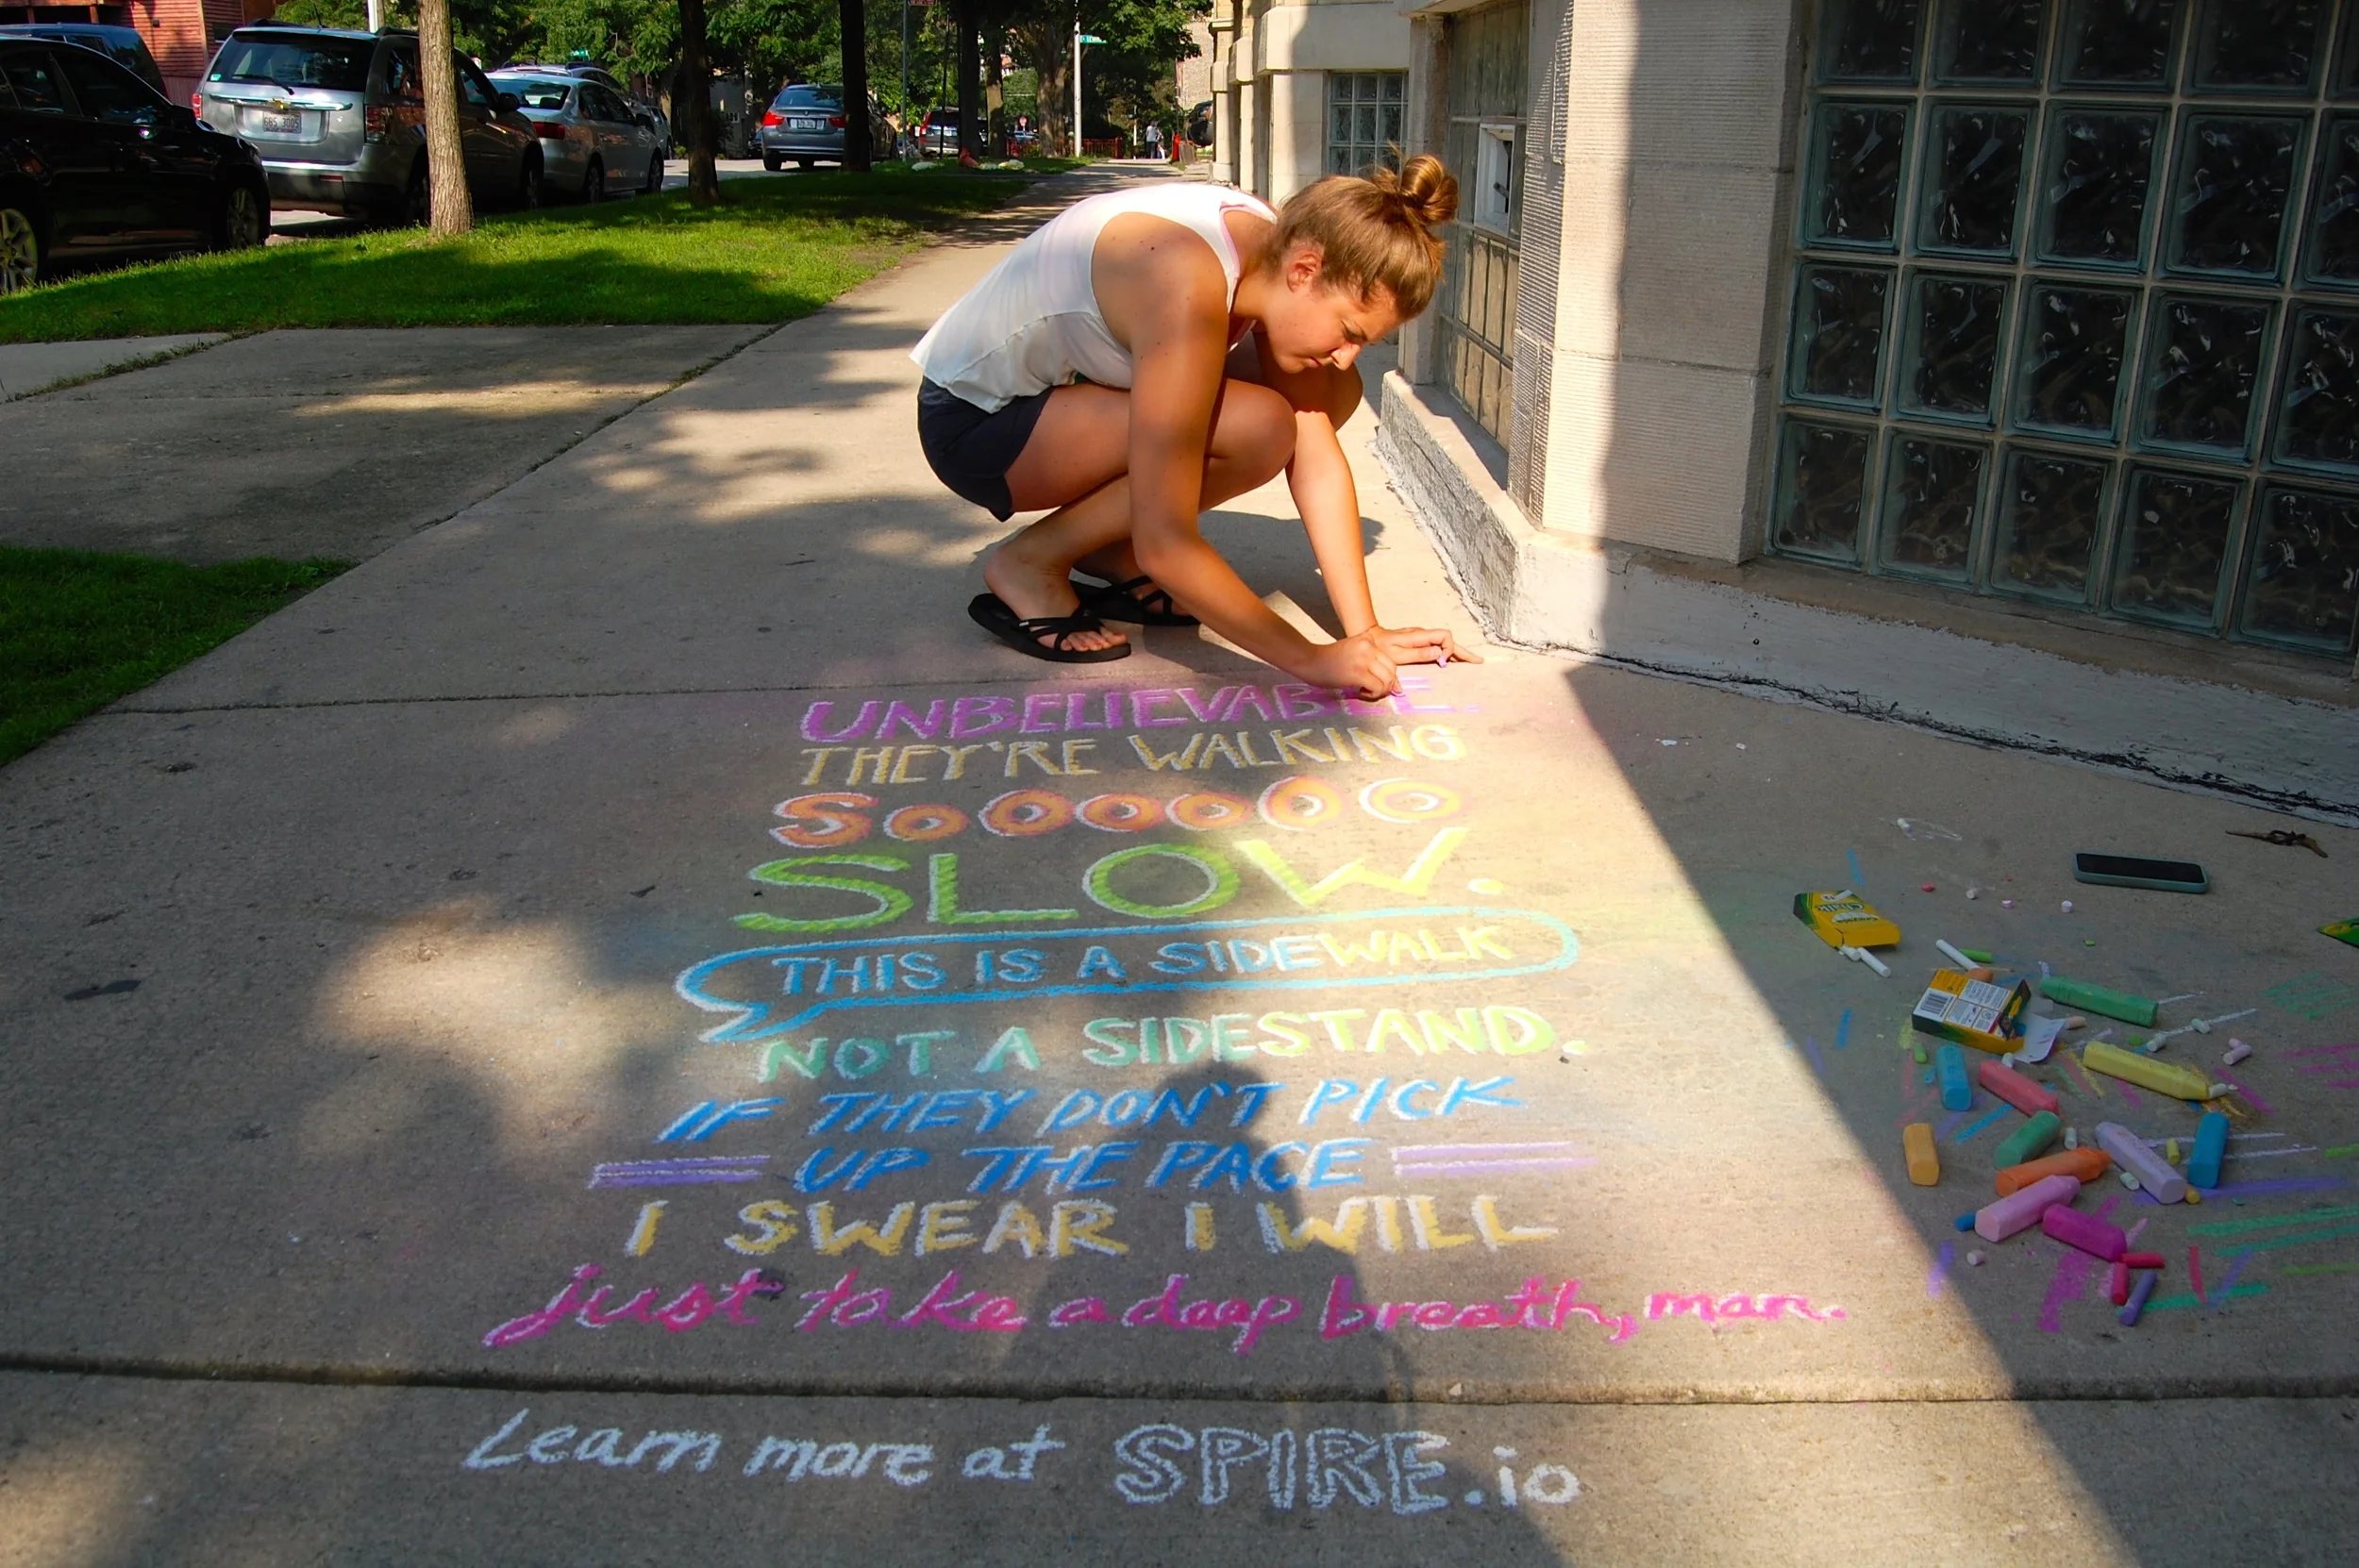 UNBELIEVABLE.
THEY'RE WALKING
SoOoooOO
SLOW.
THIS IS A SIDEWALK
NOT A SIDESTAND.
IF THEY DON'T PICK
UP THE PACE
I SWEAR I WILL
just take a deep breath, man.
Learn more at SPIRE.io
Crayola
Chalk